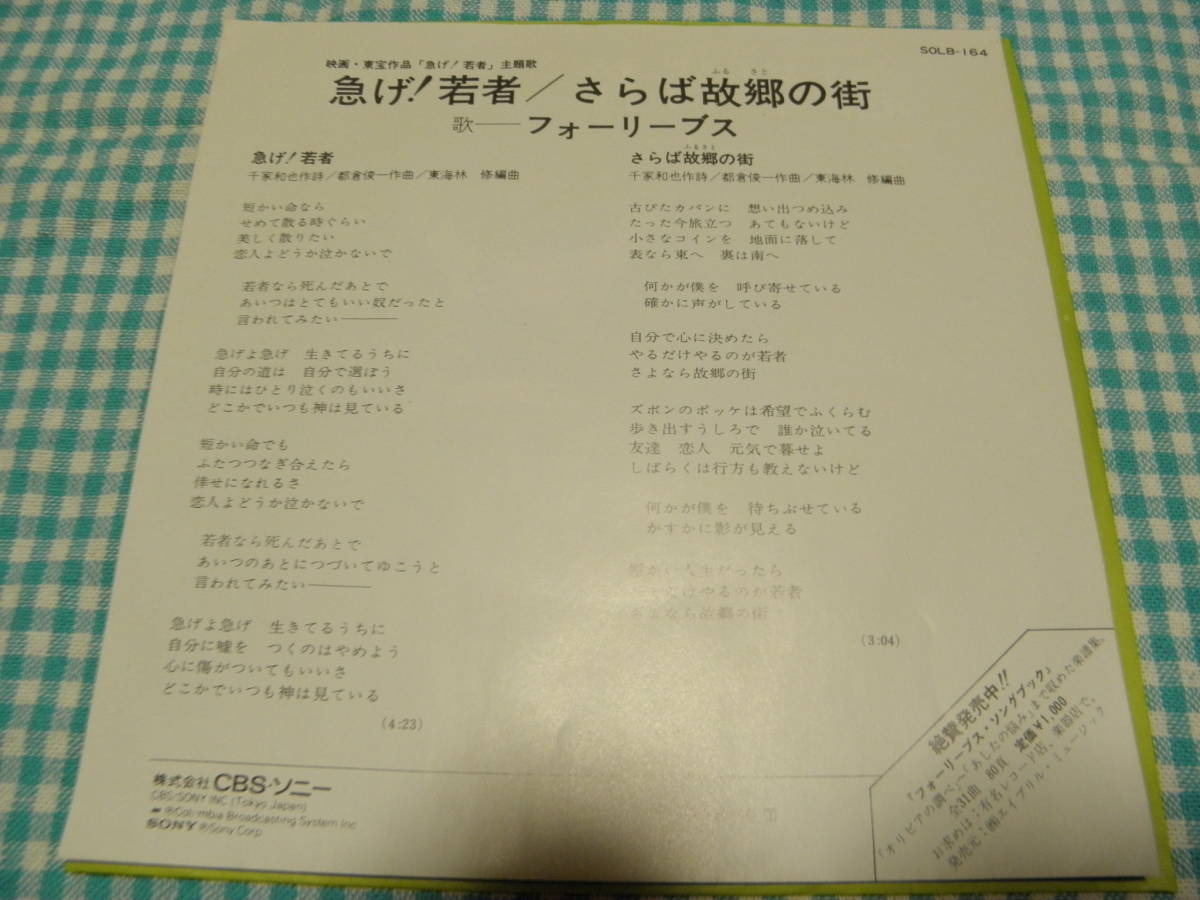 SOLB-164
映画・東宝作品「急げ！若者」主題歌
急げ！若者／さらば故郷の街
ふる さと
歌──フォーリーブス
急げ！若者
千家和也作詩／都倉俊一作曲／東海林 修編曲
短かい命なら
せめて散る時ぐらい
美しく散りたい
恋人よどうか泣かないで
若者なら死んだあとで
あいつはとてもいい奴だったと
言われてみたい────
急げよ急げ 生きてるうちに
自分の道は 自分で選ぼう
時にはひとり泣くのもいいさ
どこかでいつも神は見ている
短かい命でも
ふたつつなぎ合えたら
倖せになれるさ
恋人よどうか泣かないで
若者なら死んだあとで
あいつのあとにつづいてゆこうと
言われてみたい────
急げよ急げ 生きてるうちに
自分に嘘を つくのはやめよう
心に傷がついてもいいさ
どこかでいつも神は見ている
(4:23)
さらば故郷の街
ふるさと
千家和也作詩／都倉俊一作曲／東海林 修編曲
古びたカバンに 想い出つめ込み
たった今旅立つ あてもないけど
小さなコインを 地面に落して
表なら東へ 裏は南へ
何かが僕を 呼び寄せている
確かに声がしている
自分で心に決めたら
やるだけやるのが若者
さよなら故郷の街
ズボンのポッケは希望でふくらむ
歩き出すうしろで 誰か泣いてる
友達 恋人 元気で暮せよ
しばらくは行方も教えないけど
何かが僕を 待ちぶせている
かすかに影が見える
短かい人生だったら
やるだけやるのが若者
さよなら故郷の街
(3:04)
絶賛発売中!!
『フォーリーブス・ソングブック』
「オリビアの調べ」〜「あしたの悩み」まで収めた楽譜集。
全31曲 80頁 定価￥1,000
お求めは：有名レコード店、楽器店で。
発売元：㈱エイプリル・ミュージック
株式会社 CBS・ソニー
CBS/SONY INC (Tokyo Japan)
®Columbia Broadcasting System Inc
SONY ®Sony Corp